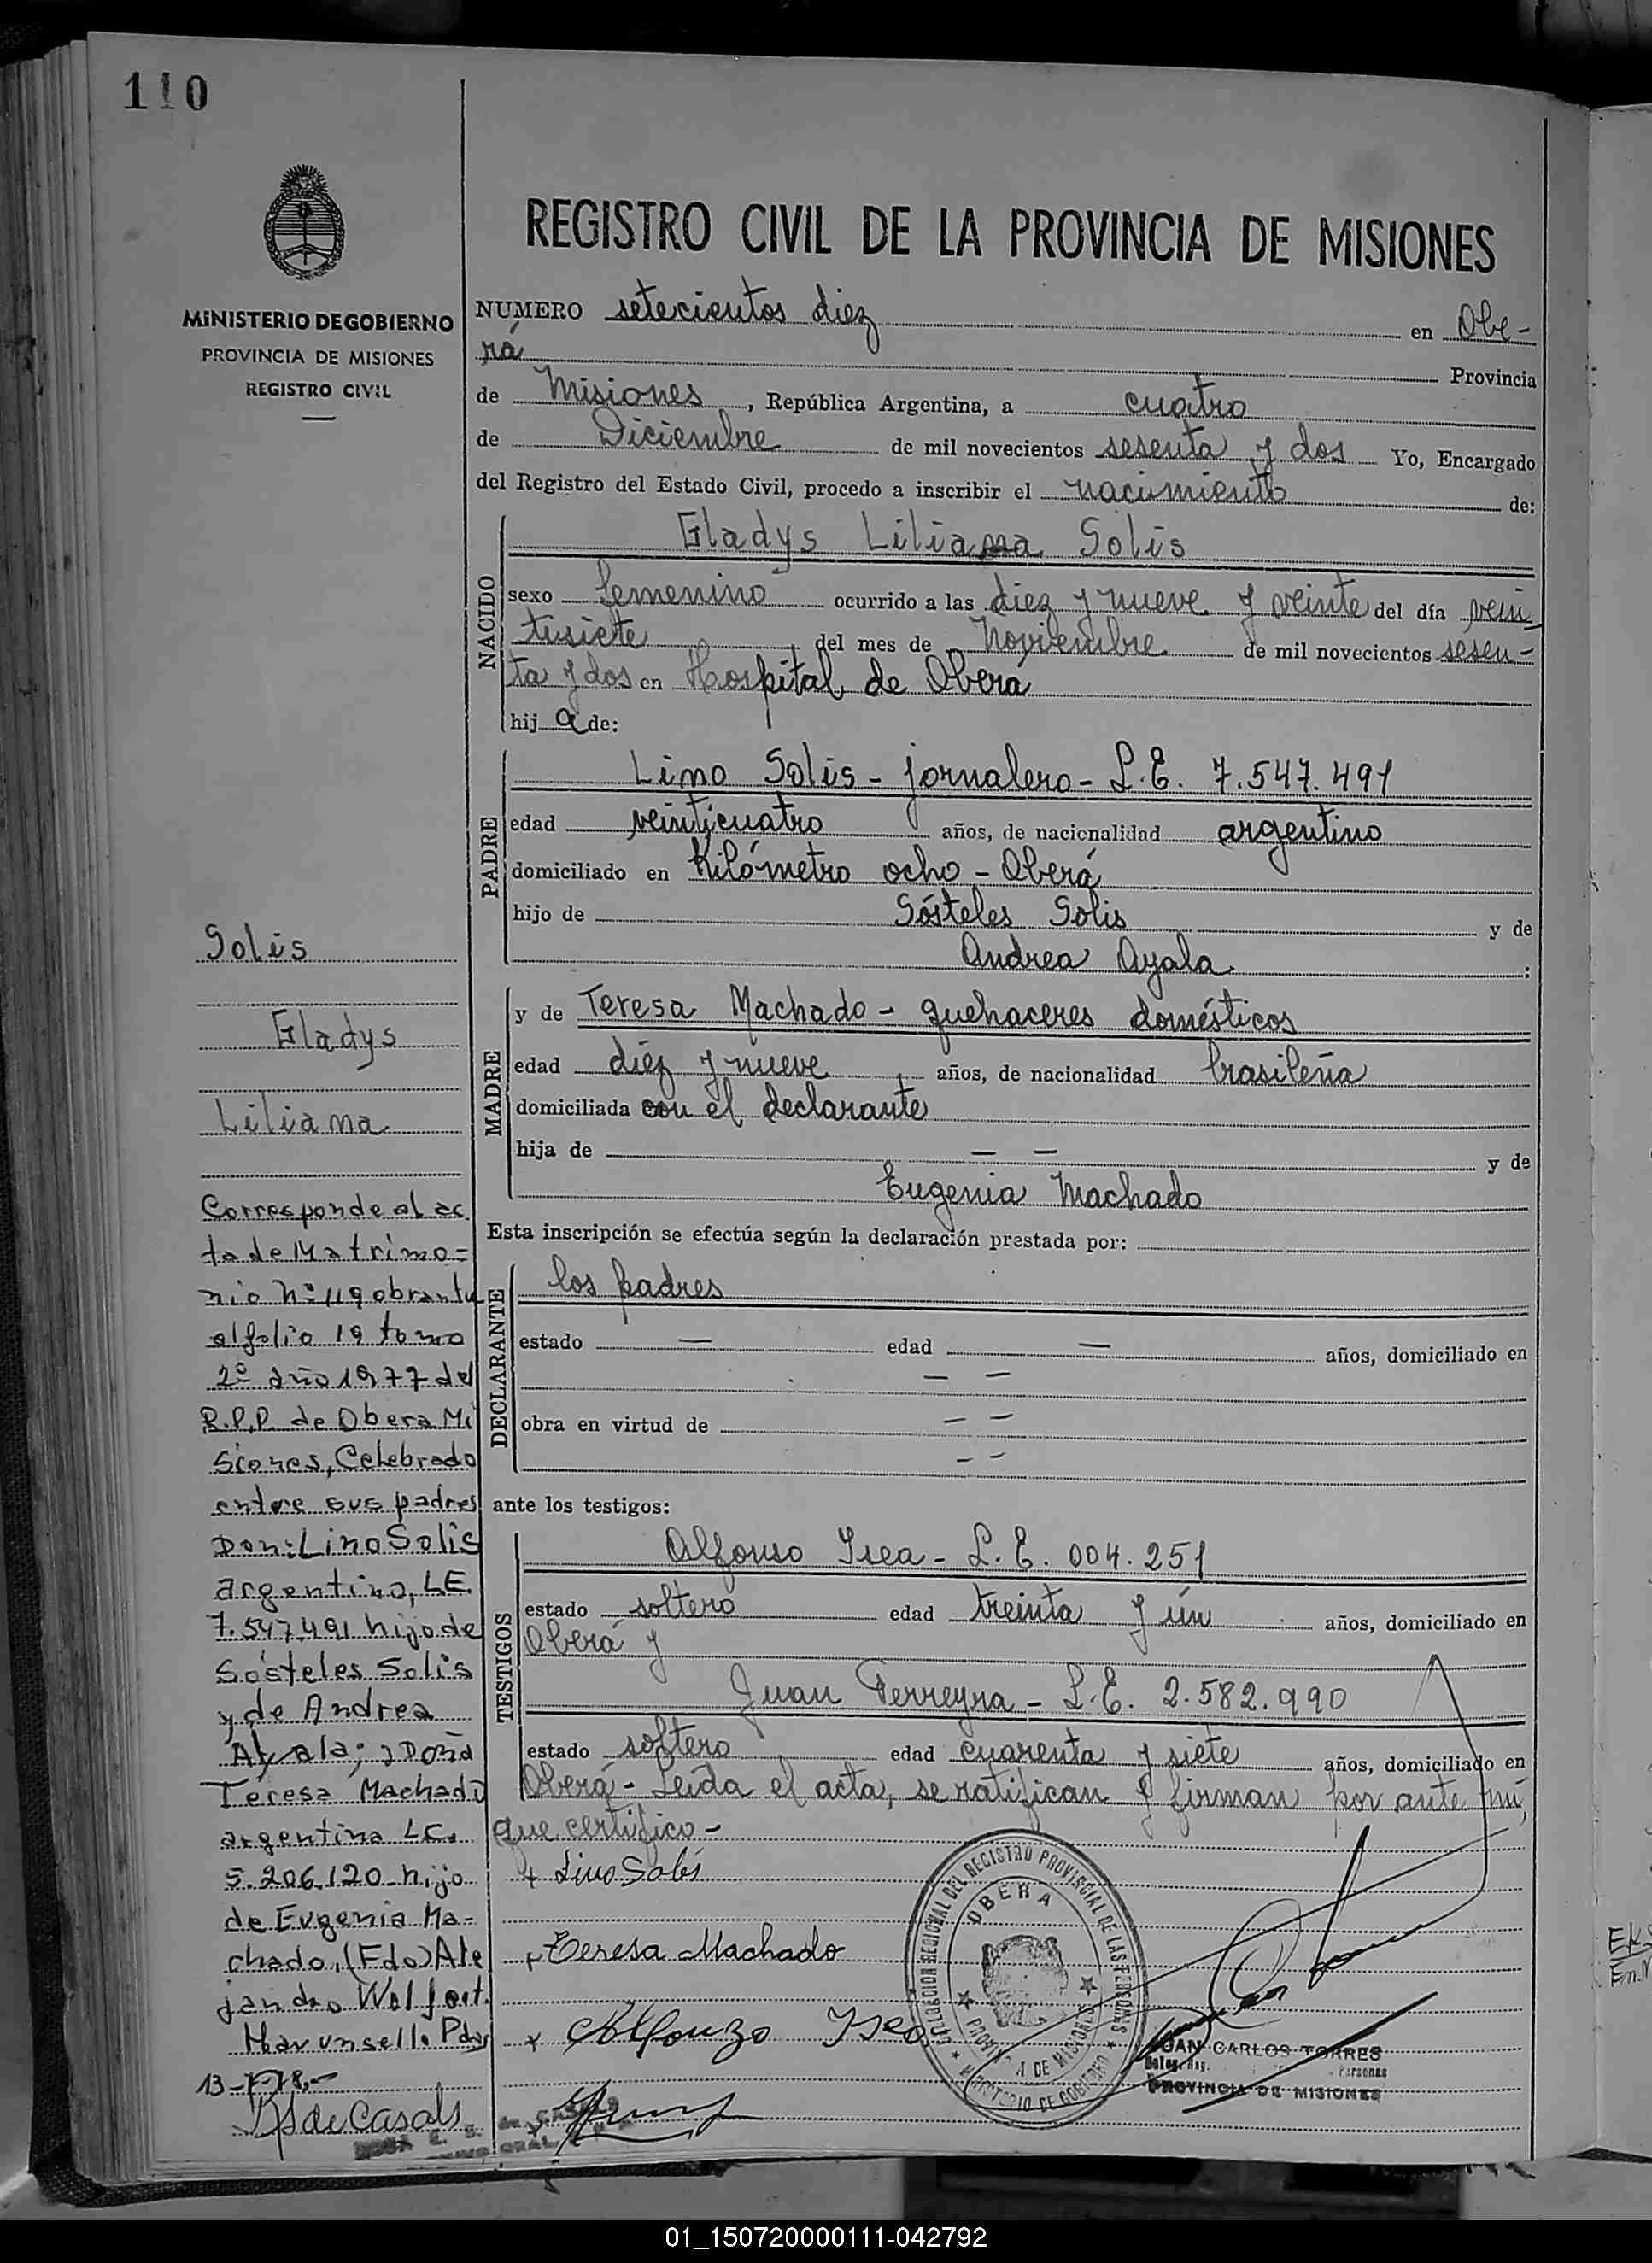 110
MINISTERIO DE GOBIERNO
PROVINCIA DE MISIONES
REGISTRO CIVIL
REGISTRO CIVIL DE LA PROVINCIA DE MISIONES
NUMERO setecientos diez en Obe-
rá Provincia
de Misiones, República Argentina, a cuatro
de Diciembre de mil novecientos sesenta y dos Yo, Encargado
del Registro del Estado Civil, procedo a inscribir el nacimiento de:
NACIDO
Gladys Liliana Solis
sexo femenino ocurrido a las diez y nueve y veinte del día vein
tisiete del mes de Noviembre de mil novecientos sesen-
ta y dos en Hospital de Oberá
hij a de:
PADRE
Lino Solis - jornalero - L.E. 7.547.491
edad veinticuatro años, de nacionalidad argentino
domiciliado en Kilómetro ocho - Oberá
hijo de Sósteles Solis y de
Andrea Ayala :
MADRE
y de Teresa Machado - quehaceres domésticos
edad diez y nueve años, de nacionalidad brasileña
domiciliada con el declarante
hija de — — y de
Eugenia Machado
Esta inscripción se efectúa según la declaración prestada por:
DECLARANTE
los padres
estado — edad — años, domiciliado en
— —
obra en virtud de — —
— —
ante los testigos:
TESTIGOS
Alfonso Isea - L.E. 004.251
estado soltero edad treinta y ún años, domiciliado en
Oberá y
Juan Ferreyra - L.E. 2.582.990
estado soltero edad cuarenta y siete años, domiciliado en
Oberá - Leída el acta, se ratifican y firman por ante mí,
que certifico -
+ Lino Solis
+ Teresa Machado
+ Alfonzo Iseo
DELEGACION REGIONAL DEL REGISTRO PROVINCIAL DE LAS PERSONAS
OBERA
PROVINCIA DE MISIONES
MINISTERIO DE GOBIERNO
JUAN CARLOS TORRES
Deleg. Reg. Personas
PROVINCIA DE MISIONES
Solis
Gladys
Liliana
Corresponde al ac
ta de Matrimo-
nio Nº 119 obrante
al folio 19 tomo
2º año 1977 del
R.P.P. de Obera Mi
siones, Celebrado
entre sus padres
Don: Lino Solis
argentino, LE.
7.547.491 hijo de
Sósteles Solis
y de Andrea
Ayala; y Doña
Teresa Machado
argentina LC.
5.206.120 hija
de Eugenia Ma-
chado, (Fdo) Ale
jandro Wolfart.
13-
de Casals
01_150720000111-042792